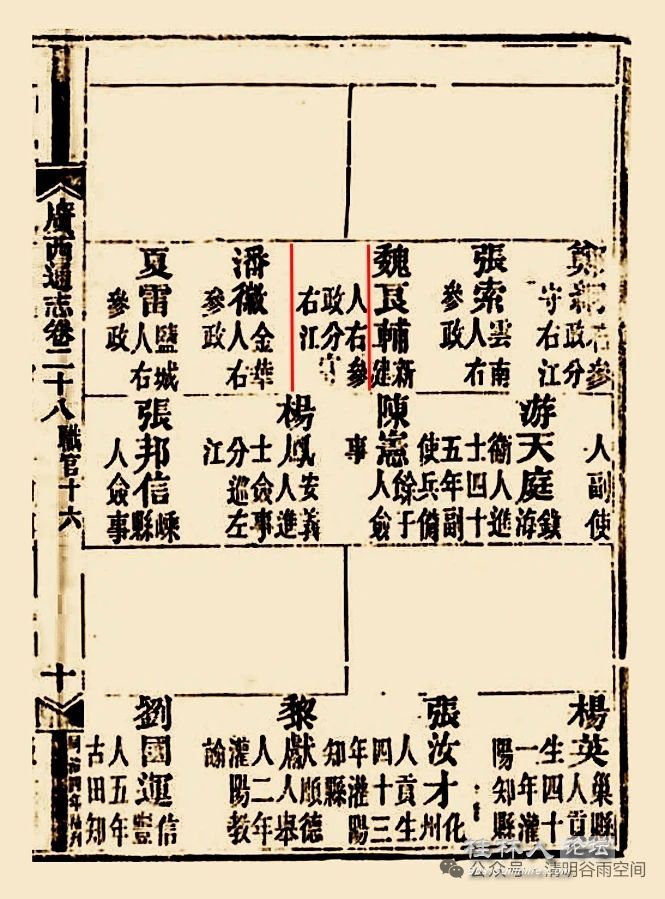 右參
政分
守右江
張索雲南
人右
參政
魏良輔新建
人右參
政分守
右江
潘徽金華
人右
參政
夏雷鹽城
人右
參政
人副使
游天庭鎮
衛人進
士四十
五年副
使兵備
陳憲餘干
人僉
事
楊安義
人進
士僉事
分巡左
江
張邦信嵊縣
人僉事
楊英巢縣
人貢
生四十
一年灌
陽知縣
張汝才化州
人貢生
四十三
年灌陽
知縣
黎獻順德
人舉
人二年
灌陽教
諭
劉國運信豐
人五年
古田知
廣西通志卷二十八
職官十六
十
桂林人论坛
公众号 · 清明谷雨空间